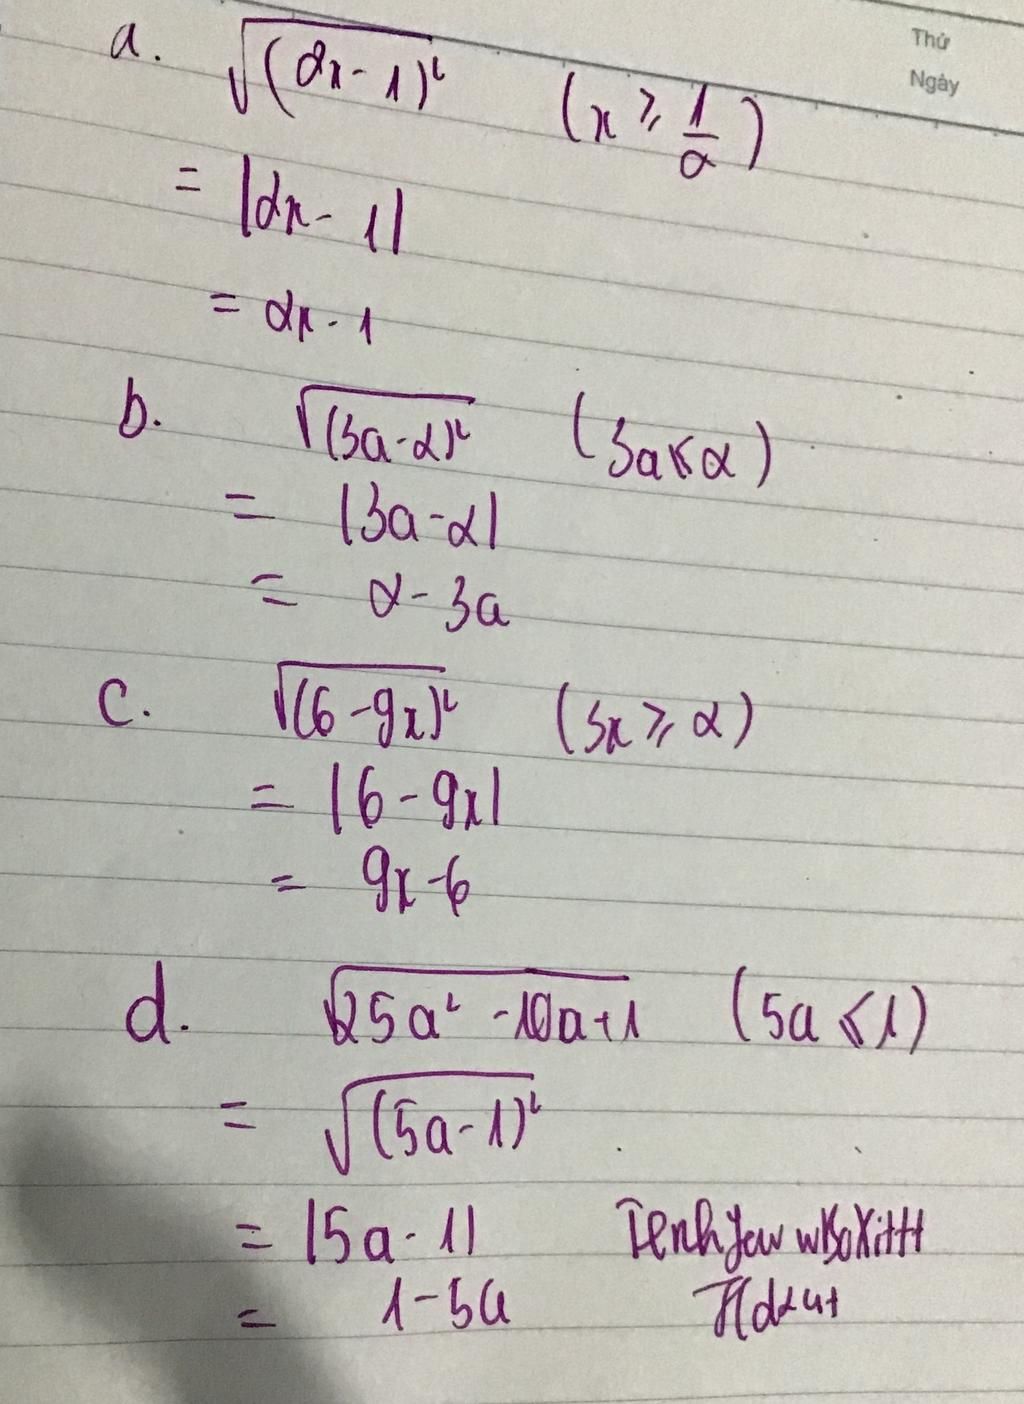 Thứ
Ngày
a. √(2x-1)² (x ≥ 1/2)
= |2x-1|
= 2x-1
b. √(3a-2)² (3a ≤ 2)
= |3a-2|
= 2-3a
c. √(6-9x)² (3x ≥ 2)
= |6-9x|
= 9x-6
d. √25a²-10a+1 (5a ≤ 1)
= √(5a-1)²
= |5a-1|
= 1-5a